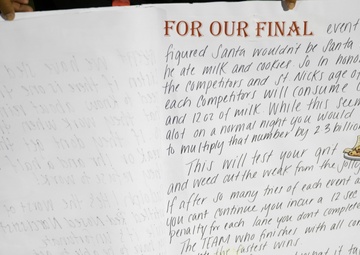 FOR OUR FINAL event
figured Santa wouldn't be Santa
he ate milk and cookies so in hono
the competitors and St. Nicks age o
each competitors will consume
and 12 oz of milk. While this seem
alot on a normal night you would
to multiply that number by 2.3 billio
This will test your grit
and weed out the weak from the jolly
If after so many tries of each event a
you cant continue you incur a 12 sec
penalty for each lane you dont complete
The TEAM who finishes with all con
the fastest wins
what it ta